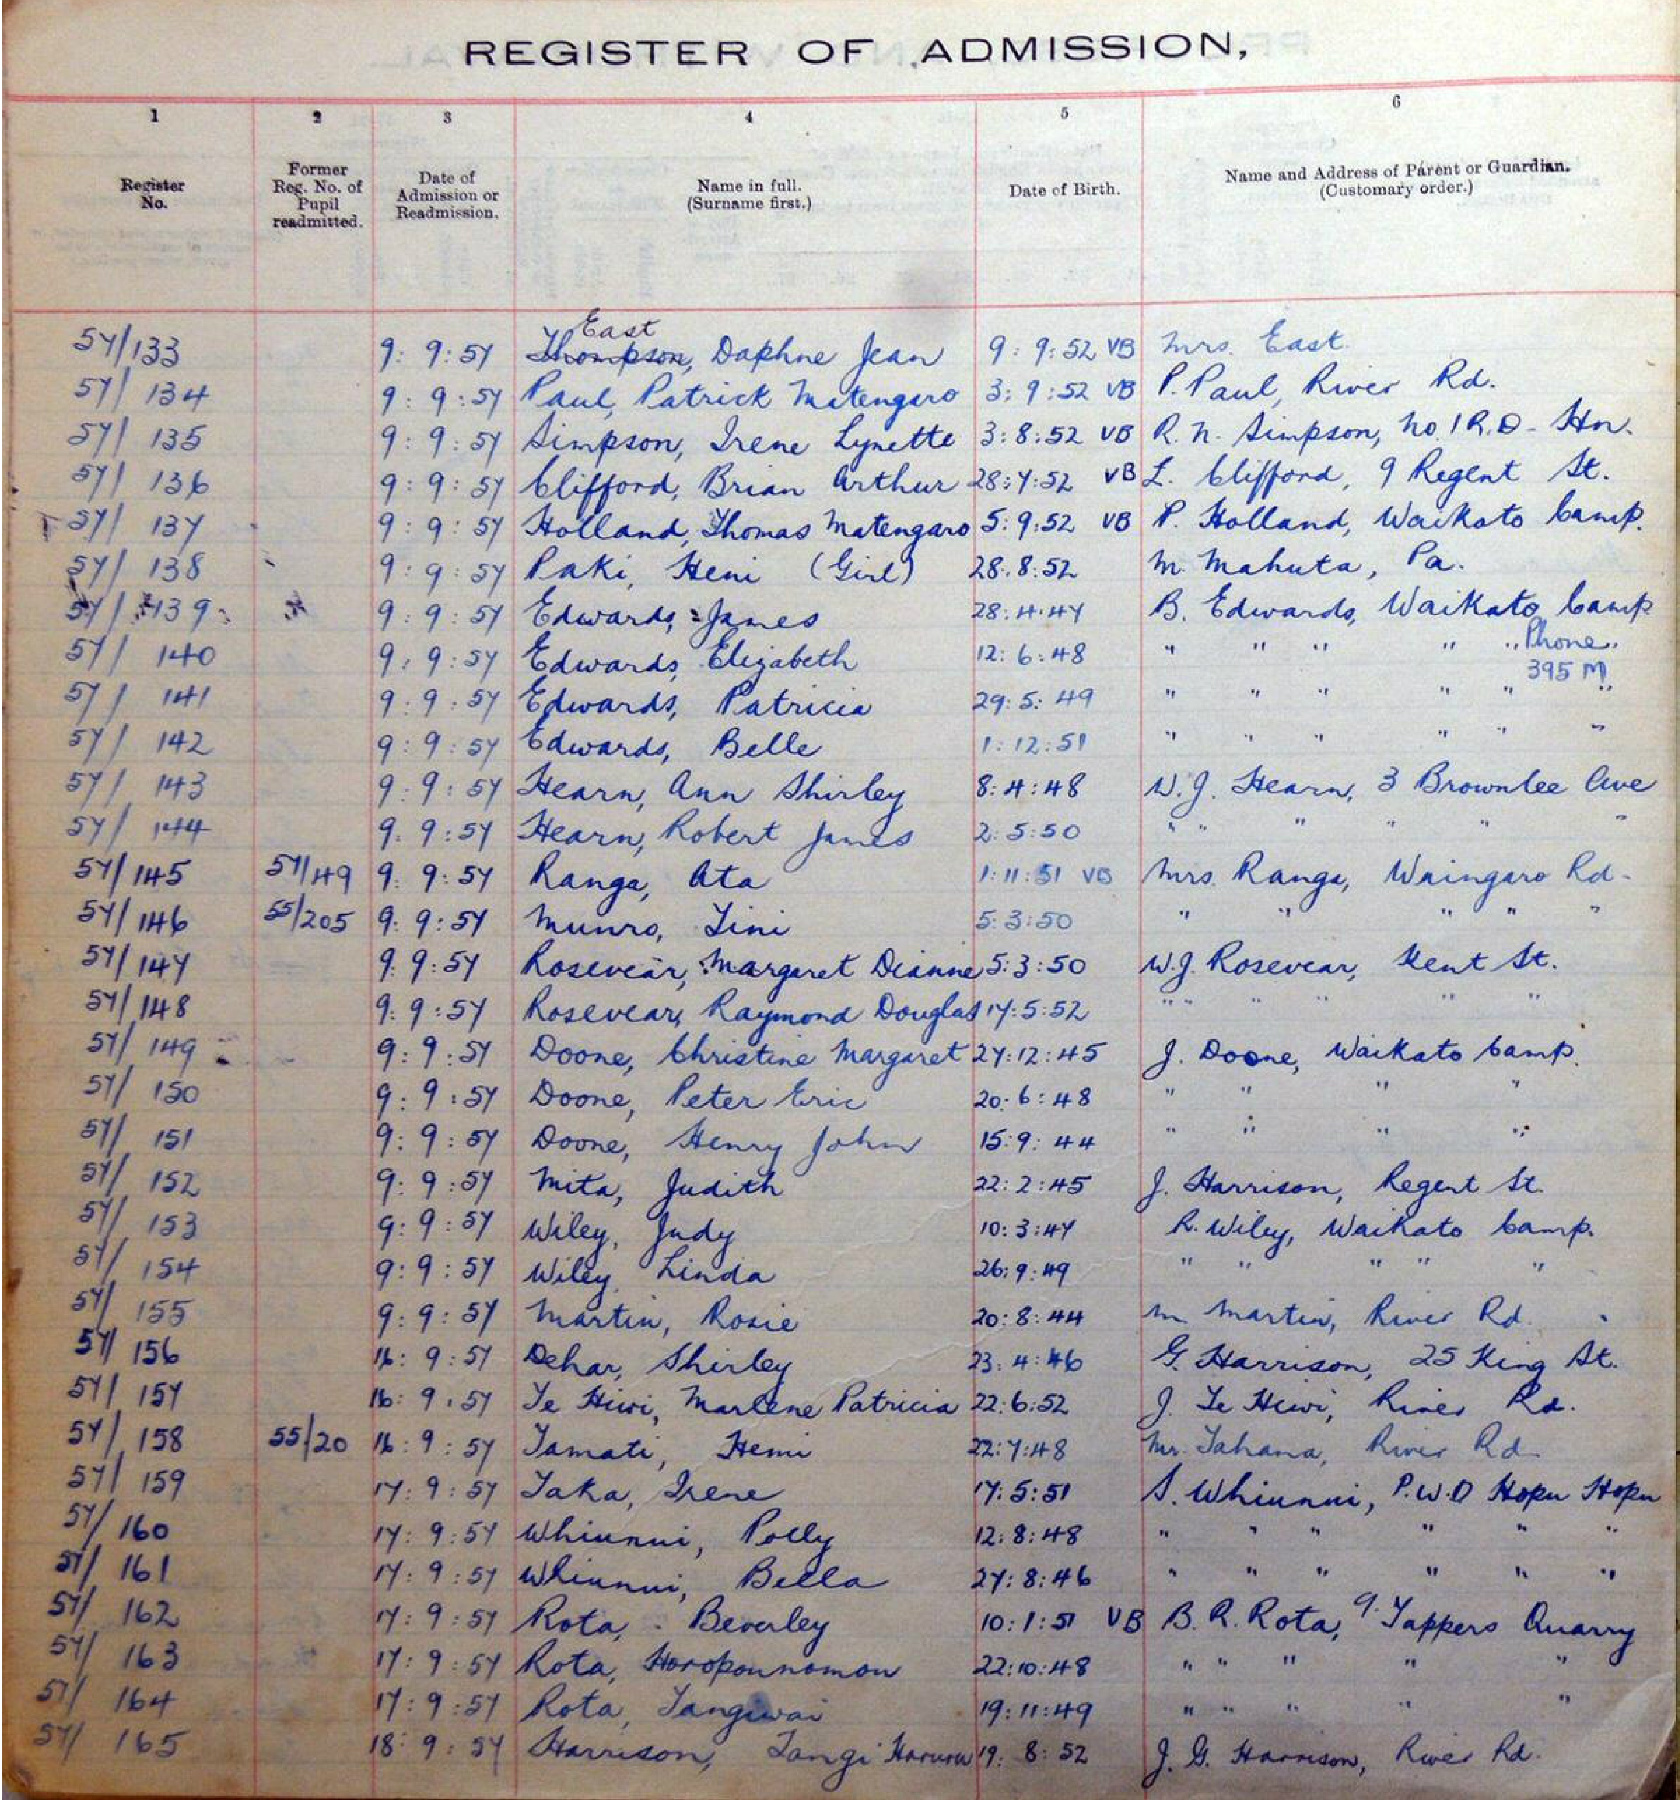 REGISTER OF ADMISSION,
1 2 3 4 5 6
Register No. Former Reg. No. of Pupil readmitted. Date of Admission or Readmission. Name in full. (Surname first.) Date of Birth. Name and Address of Parent or Guardian. (Customary order.)
East
57/133 9:9:57 Thompson, Daphne Jean 9:9:52 VB Mrs. East.
57/134 9:9:57 Paul, Patrick Matengaro 3:9:52 VB P. Paul, River Rd.
57/135 9:9:57 Simpson, Irene Lynette 3:8:52 VB R. N. Simpson, No. 1 R.D. Hn.
57/136 9:9:57 Clifford, Brian Arthur 28:7:52 VB L. Clifford, 9 Regent St.
57/137 9:9:57 Holland, Thomas Matengaro 5:9:52 VB P. Holland, Waikato Camp.
57/138 9:9:57 Paki, Heni (Girl) 28:8:52 M. Mahuta, Pa.
57/139 9:9:57 Edwards, James 28:4:47 B. Edwards, Waikato Camp
57/140 9:9:57 Edwards, Elizabeth 12:6:48 " " " " " Phone
395 M
57/141 9:9:57 Edwards, Patricia 29:5:49 " " " " " "
57/142 9:9:57 Edwards, Belle 1:12:51 " " " " " "
57/143 9:9:57 Hearn, Ann Shirley 8:4:48 W. J. Hearn, 3 Brownlee Ave
57/144 9:9:57 Hearn, Robert James 2:5:50 " " " " " "
57/145 57/49 9:9:57 Ranga, Ata 1:11:51 VB Mrs. Ranga, Waingaro Rd.
57/146 55/205 9:9:57 Munro, Tini 5:3:50 " " " " "
57/147 9:9:57 Rosevear, Margaret Dianne 5:3:50 W.J. Rosevear, Kent St.
57/148 9:9:57 Rosevear, Raymond Douglas 17:5:52 " " " " " "
57/149 9:9:57 Doone, Christine Margaret 27:12:45 J. Doone, Waikato Camp.
57/150 9:9:57 Doone, Peter Eric 20:6:48 " " " "
57/151 9:9:57 Doone, Henry John 15:9:44 " " " "
57/152 9:9:57 Mita, Judith 22:2:45 J. Harrison, Regent St.
57/153 9:9:57 Wiley, Judy 10:3:47 R. Wiley, Waikato Camp.
57/154 9:9:57 Wiley, Linda 26:9:49 " " " " "
57/155 9:9:57 Martin, Rosie 20:8:44 M. Martin, River Rd.
57/156 16:9:57 Dehar, Shirley 23:4:46 G. Harrison, 25 King St.
57/157 16:9:57 Te Hiwi, Marlene Patricia 22:6:52 J. Te Hiwi, River Rd.
57/158 55/20 16:9:57 Tamati, Hemi 22:7:48 Mr. Tahana, River Rd.
57/159 17:9:57 Taka, Irene 17:5:51 S. Whiunui, P.W.D Hopu Hopu
57/160 17:9:57 Whiunui, Polly 12:8:48 " " " " " "
57/161 17:9:57 Whiunui, Bella 27:8:46 " " " " " "
57/162 17:9:57 Rota, Beverley 10:1:51 VB B. R. Rota, Tappers Quarry
57/163 17:9:57 Rota, 22:10:48 " " " " "
57/164 17:9:57 Rota, Tangiwai 19:11:49 " " " " "
57/165 18:9:57 Harrison, Tangi 19:8:52 J. G. Harrison, River Rd.